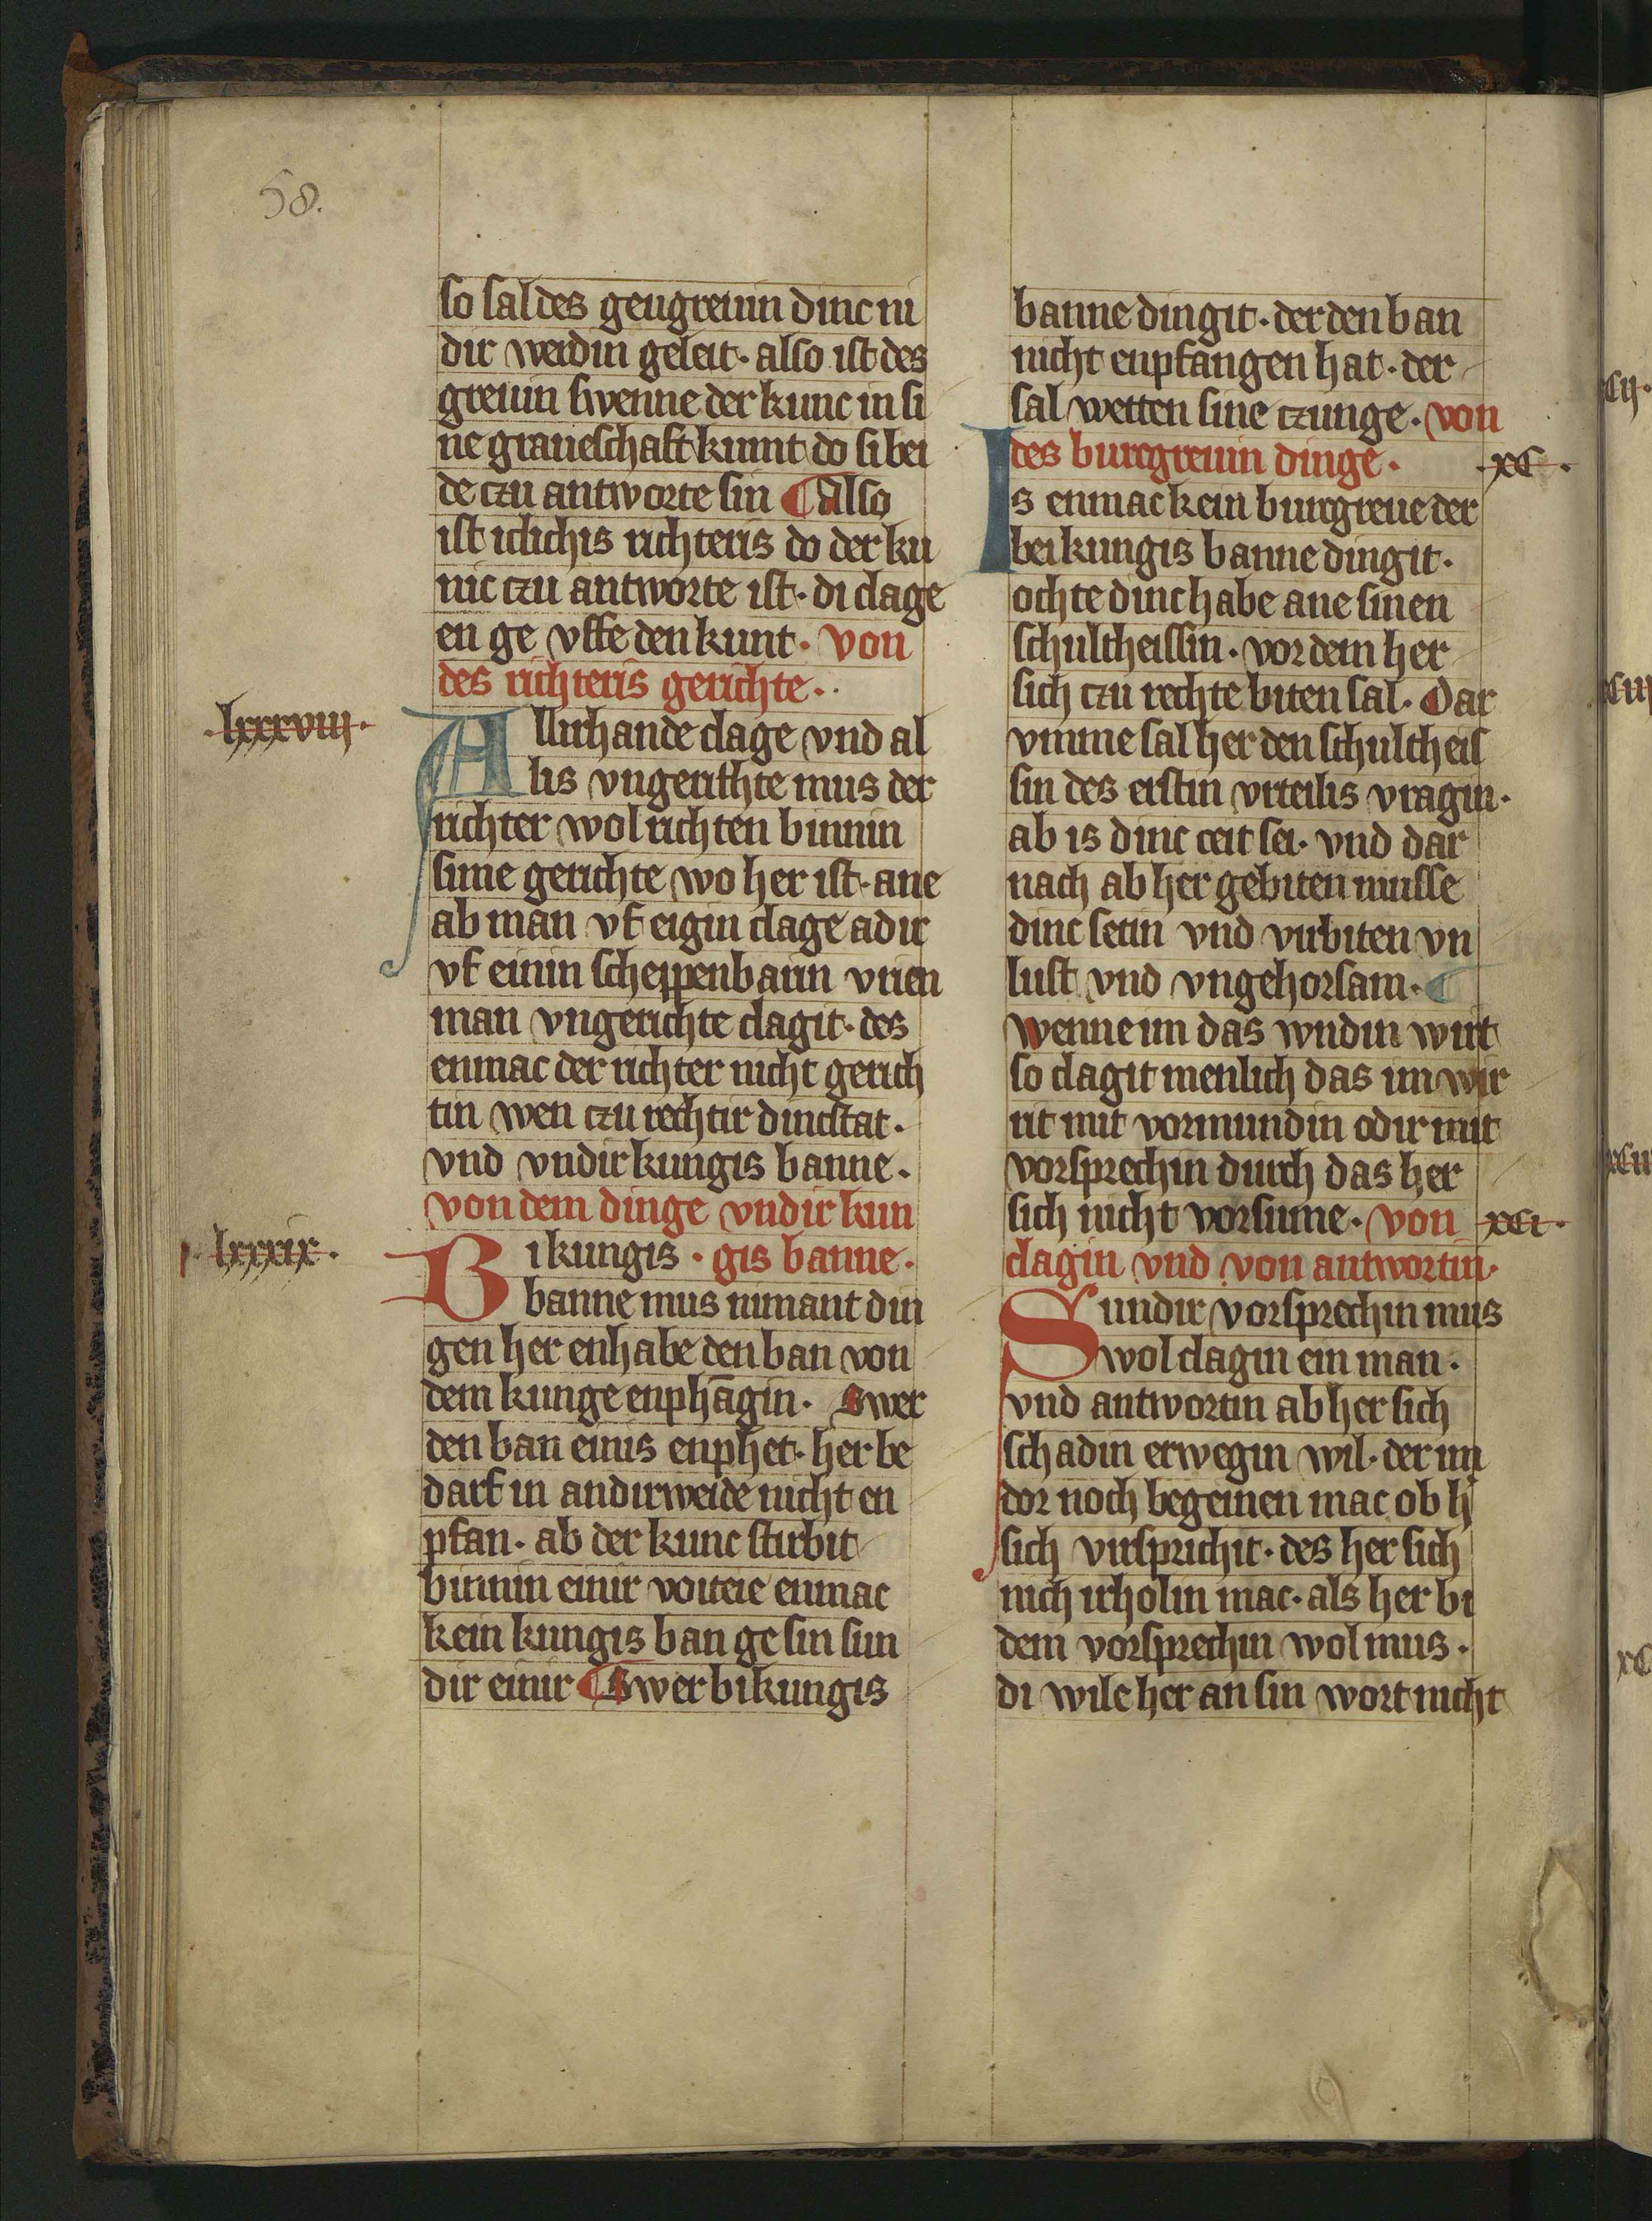 58.
so sal des geugreuin dinc ni
dir werdin geleit· also ist des
greuin swenne der kunc in si
ne graueschaft kumt do si bei
de czu antworte sin ¶ Also
ist iclichis richteris do der ku
nic czu antworte ist· di clage
en ge vffe den kunt· von
des richteris gerichte·
·lxxxviij·
Allirhande clage vnd al
lis vngerithte mus der
richter wol richten binnin
sime gerichte wo her ist· ane
ab man vf eigin clage adir
vf einin scheppenbarin vrien
man vngerichte clagit· des
enmac der richter nicht gerich
tin wen czu rechtir dincstat·
vnd vndir kungis banne·
von dem dinge vndir kun
·lxxxix·
Bi kungis · gis banne·
banne mus nimant din
gen her enhabe den ban von
dem kunge enphāgin· Swer
den ban einis enphet· her be
darf in andirweide nicht en
pfan· ab der kunc stirbit
binnin einir voiteie enmac
kein kungis ban ge sin sun
dir einir ¶ Swer bi kungis
banne dingit· der den ban
nicht enpfangen hat· der
sal wetten sine czunge· von
des burcgreuin dinge·
·xc·
Is enmac kein burcgreue der
bei kungis banne dingit·
ochte dinc habe ane sinen
schultheissin· vor dem her
sich czu rechte biten sal· Dar
vmme sal her den schultheis
sin des eirstin vrteilis vragin·
ab is dinc ceit sei· vnd dar
nach ab her gebiten musse
dinc setin vnd virbiten vn
lust vnd vngehorsam· ¶
wenne im das wndin wirt
so clagit menlich das im wir
rit mit vormundin odir mit
vorsprechin durch das her
sich nicht vorsume· von
·xci·
clagin vnd von antwortin·
Sundir vorsprechin mus
wol clagin ein man·
vnd antwortin ab her sich
schadin erwegin wil· der im
dor noch begeinen mac ob h'
sich virsprichit· des her sich
nich irholin mac· als her bi
dem vorsprechin wol mus·
di wile her an sin wort nicht